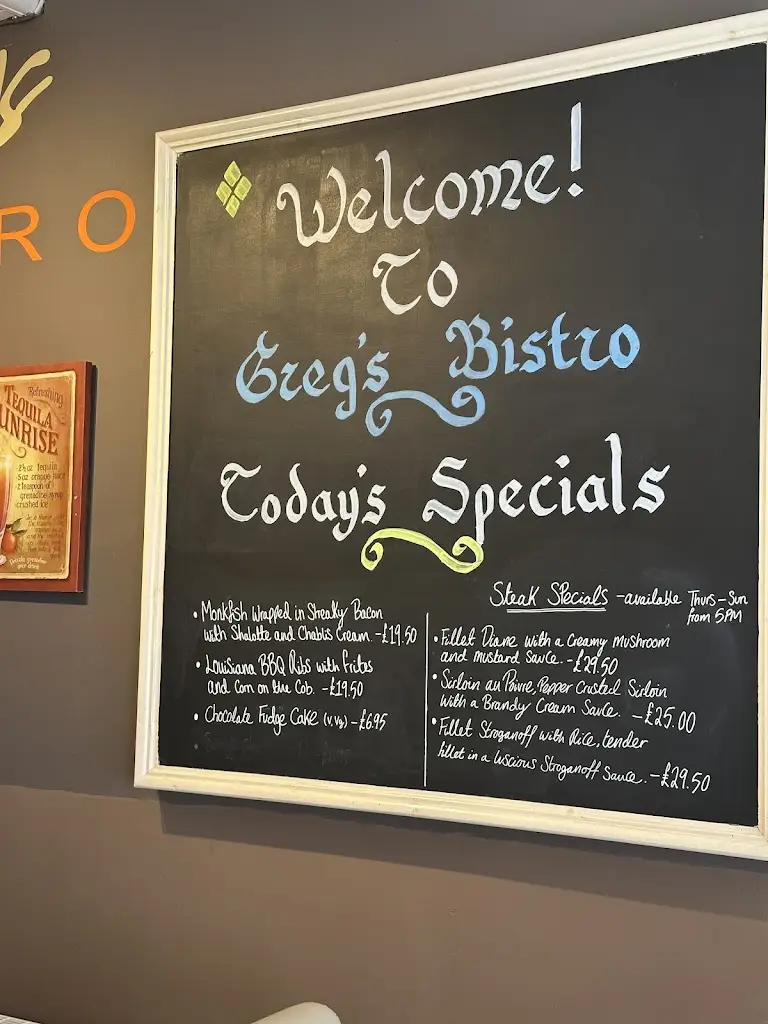 RO
Refreshing
TEQUILA
UNRISE
crushed ice
Welcome!
To
Greg's Bistro
Today's Specials
• Monkfish Wrapped in Streaky Bacon
with Shalotte and Chablis Cream. -£19.50
• Louisiana BBQ Ribs with Frites
and Corn on the Cob. -£19.50
• Chocolate Fudge Cake (v, vg) - £6.95
Steak Specials - available Thurs - Sun
from 5PM
• Fillet Diane with a Creamy Mushroom
and Mustard Sauce. - £29.50
• Sirloin au Poivre, Pepper Crusted Sirloin
with a Brandy Cream Sauce. - £25.00
• Fillet Stroganoff with Rice, tender
fillet in a luscious Stroganoff Sauce. - £29.50